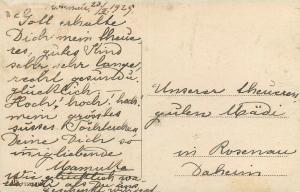 23/XI 1929
Gott erhalte
Dich mein theue-
res, gutes Kind
sehr, sehr lange
recht gesund u.
glücklich
Hoch! hoch! hoch!
mein grosses
süsses Töchterchen
Deine Dich so
innigliebende
Mamutka
Wie glücklich
Unserer theueren
guten Mädi
in Rosenau
Daheim